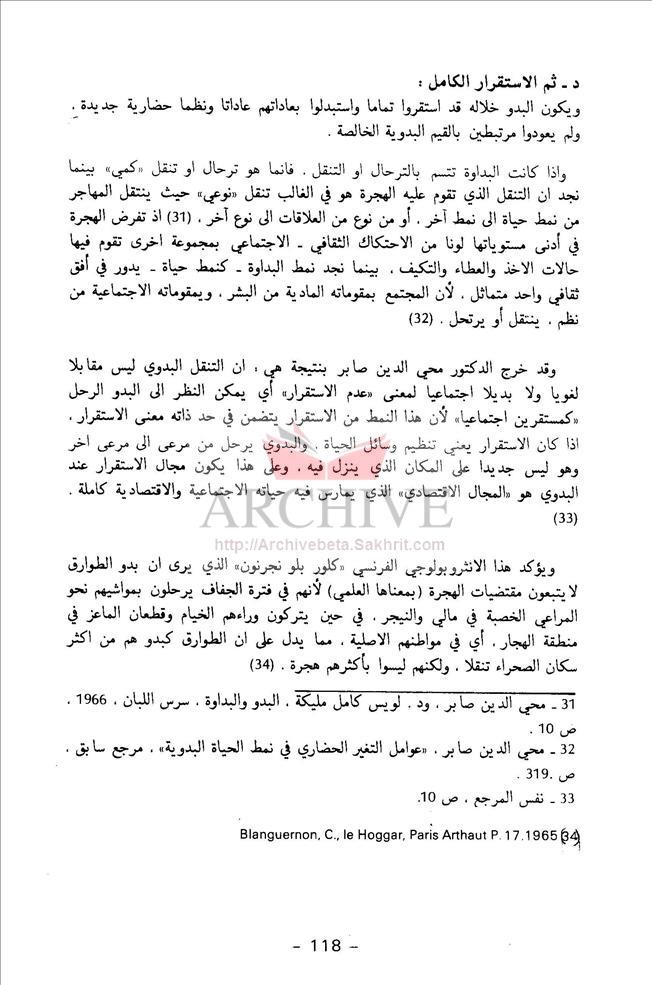 د ـ ثم الاستقرار الكامل :
ويكون البدو خلاله قد استقروا تماما واستبدلوا بعاداتهم عاداتا ونظما حضارية جديدة .
ولم يعودوا مرتبطين بالقيم البدوية الخالصة .
واذا كانت البداوة تتسم بالترحال او التنقل . فانما هو ترحال او تنقل «كمي» بينما
نجد ان التنقل الذي تقوم عليه الهجرة هو في الغالب تنقل «نوعي» حيث ينتقل المهاجر
من نمط حياة الى نمط آخر . أو من نوع من العلاقات الى نوع آخر . (31) اذ تفرض الهجرة
في أدنى مستوياتها لونا من الاحتكاك الثقافي ـ الاجتماعي بمجموعة اخرى تقوم فيها
حالات الاخذ والعطاء والتكيف . بينما نجد نمط البداوة ـ كنمط حياة ـ يدور في أفق
ثقافي واحد متماثل . لأن المجتمع بمقوماته المادية من البشر . وبمقوماته الاجتماعية من
نظم . ينتقل أو يرتحل . (32)
وقد خرج الدكتور محي الدين صابر بنتيجة هي : ان التنقل البدوي ليس مقابلا
لغويا ولا بديلا اجتماعيا لمعنى «عدم الاستقرار» أي يمكن النظر الى البدو الرحل
«كمستقرين اجتماعيا» لأن هذا النمط من الاستقرار يتضمن في حد ذاته معنى الاستقرار .
اذا كان الاستقرار يعني تنظيم وسائل الحياة . والبدوي يرحل من مرعى الى مرعى اخر
وهو ليس جديدا على المكان الذي ينزل فيه . وعلى هذا يكون مجال الاستقرار عند
البدوي هو «المجال الاقتصادي» الذي يمارس فيه حياته الاجتماعية والاقتصادية كاملة .
(33)
ARCHIVE
http://Archivebeta.Sakhrit.com
ويؤكد هذا الانثروبولوجي الفرنسي «كلور بلو نجرنون» الذي يرى ان بدو الطوارق
لا يتبعون مقتضيات الهجرة (بمعناها العلمي) لأنهم في فترة الجفاف يرحلون بمواشيهم نحو
المراعي الخصبة في مالي والنيجر . في حين يتركون وراءهم الخيام وقطعان الماعز في
منطقة الهجار . أي في مواطنهم الاصلية . مما يدل على ان الطوارق كبدو هم من اكثر
سكان الصحراء تنقلا . ولكنهم ليسوا بأكثرهم هجرة . (34)
31 ـ محي الدين صابر ، ود . لويس كامل مليكة . البدو والبداوة ، سرس اللبان ، 1966 .
ص 10 .
32 ـ محي الدين صابر . «عوامل التغير الحضاري في نمط الحياة البدوية» . مرجع سابق .
ص .319 .
33 ـ نفس المرجع . ص 10.
Blanguernon, C., le Hoggar, Paris Arthaut P. 17.1965 (34)
- 118 -